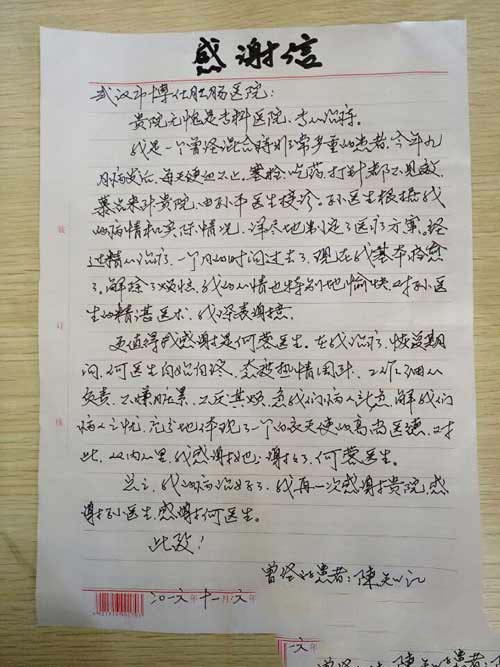 感谢信
武汉市博仕肛肠医院:
贵院无愧是专科医院、专心治痔。
我是一个曾经混合痔非常严重的患者,今年九
月病发后,每天便血不止,塞栓、吃药、打针都不见效,
慕名来到贵院,由孙平医生接诊。孙医生根据我
的病情和实际情况,详尽地制定了医疗方案。经
过精心治疗,一个月的时间过去了,现在我基本痊愈
了。解除了烦恼,我的心情也特别地愉快。对孙医
生的精湛医术,我深表谢意。
更值得我感谢是何蓉医生。在我治疗、恢复期
间,何医生的治疗,态度热情周到,工作细心
负责,不嫌脏累,不厌其烦,急我们病人之急,解我们
病人之忧,充分地体现了一个白衣天使的高尚医德,对
此,从内心里,我感谢她:谢谢了,何蓉医生。
总之,我的病治好了,我再一次感谢贵院,感
谢孙医生,感谢何医生。
此致!
曾经的患者:陳
二〇一六年十一月六年
一六年
曾经的患者